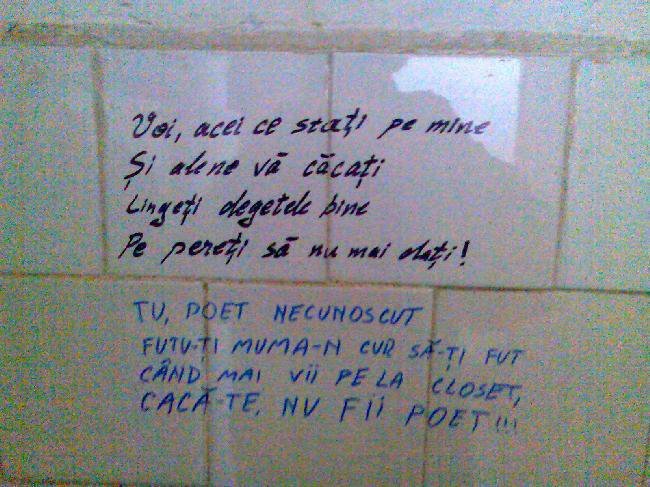 Voi, acei ce stați pe mine
Și alene vă căcați
Lingeți degetele bine
Pe pereți să nu mai dați!
TU, POET NECUNOSCUT
FUTU-ȚI MUMA-N CUR SĂ-ȚI FUT
CÂND MAI VII PE LA CLOSET,
CACĂ-TE, NU FII POET!!!